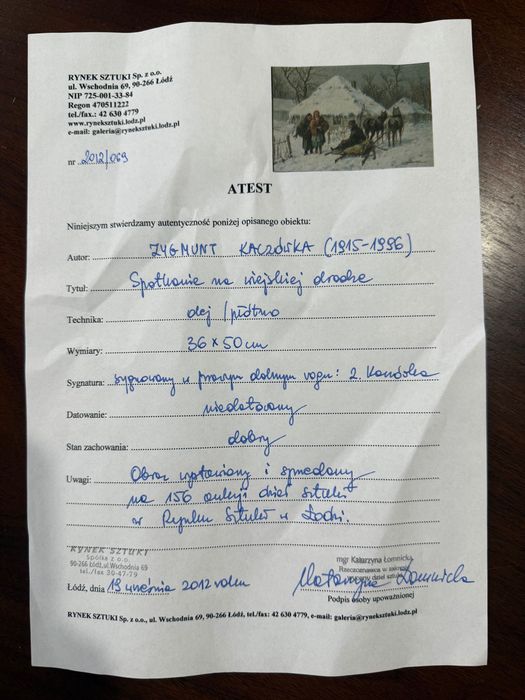 RYNEK SZTUKI Sp. z o.o.
ul. Wschodnia 69, 90-266 Łódź
NIP 725-001-33-84
Regon 470511222
tel./fax.: 42 630 4779
www.ryneksztuki.lodz.pl
e-mail: galeria@ryneksztuki.lodz.pl
nr 2012/069
ATEST
Niniejszym stwierdzamy autentyczność poniżej opisanego obiektu:
Autor: ZYGMUNT KACZÓRKA (1915-1996)
Tytuł: Spotkanie na wiejskiej drodze
Technika: olej / płótno
Wymiary: 36 x 50 cm
Sygnatura: sygnowany w prawym dolnym rogu: Z.
Datowanie: niedatowany
Stan zachowania: dobry
Uwagi: Obraz wystawiany i sprzedany
na 156 aukcji dzieł sztuki
w Rynku Sztuki w Łodzi.
RYNEK SZTUKI
Spółka z o.o.
90-266 Łódź,ul.Wschodnia 69
tel./fax 30-47-79
Łódź, dnia 19 września 2012 roku
mgr Katarzyna Łomnicka
Rzeczoznawca w zakresie
dzieł sztuki
Katarzyna Łomnicka
Podpis osoby upoważnionej
RYNEK SZTUKI Sp. z o.o., ul. Wschodnia 69, 90-266 Łódź, tel./fax: 42 630 4779, e-mail: galeria@ryneksztuki.lodz.pl